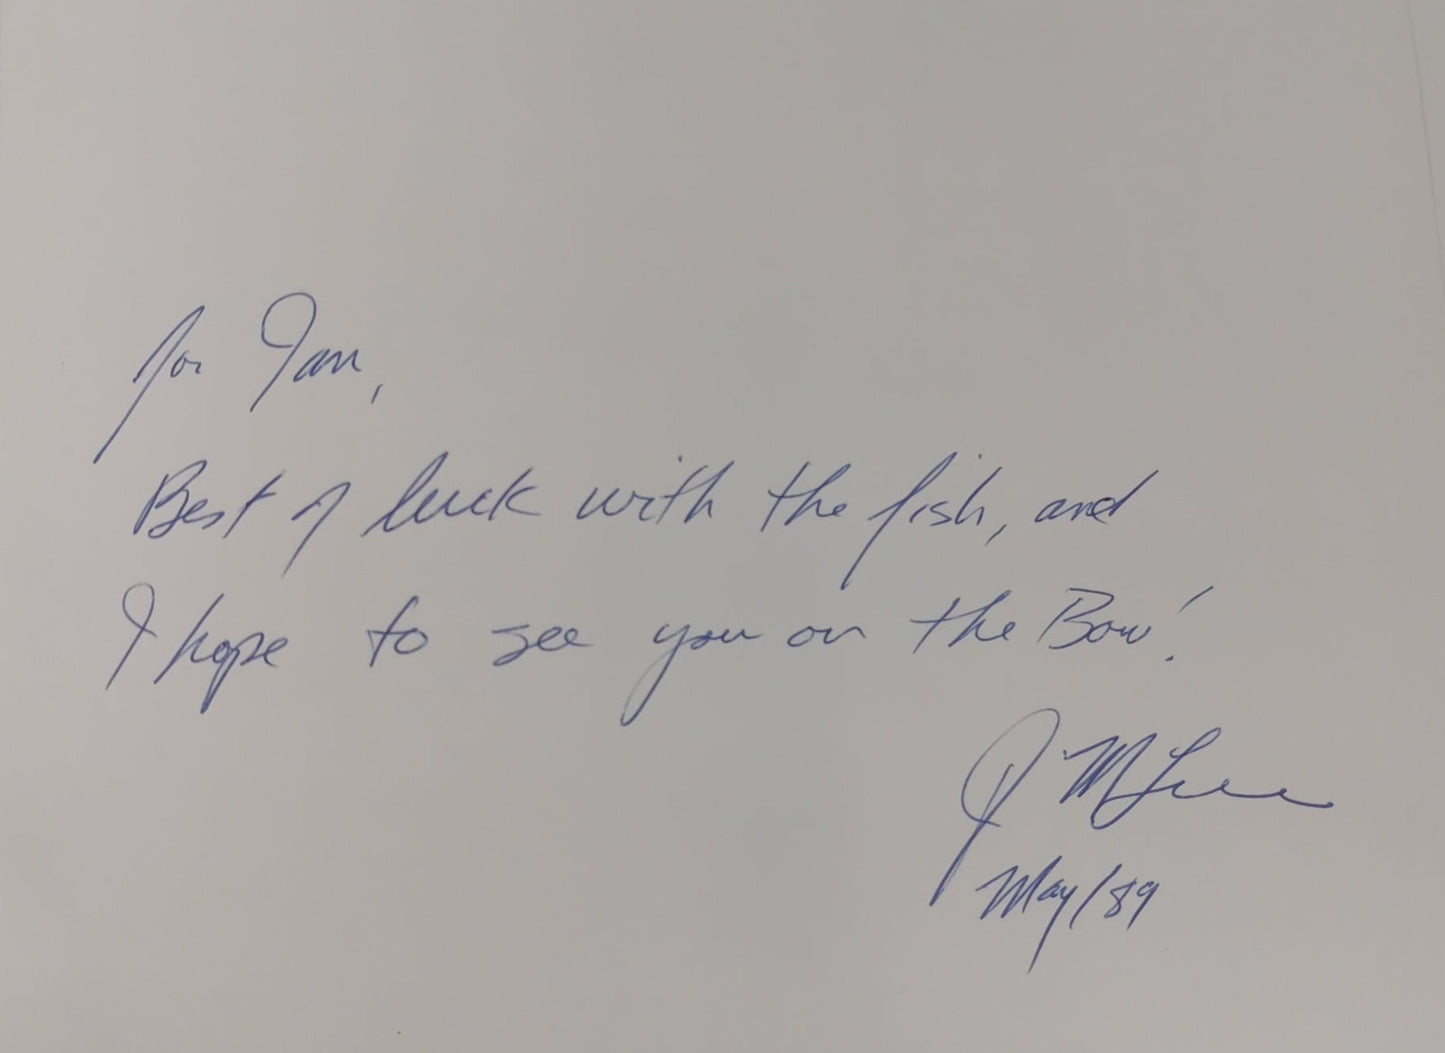 For Ian,
Best of luck with the fish, and
I hope to see you on the Bow!
J McLennan
May/89